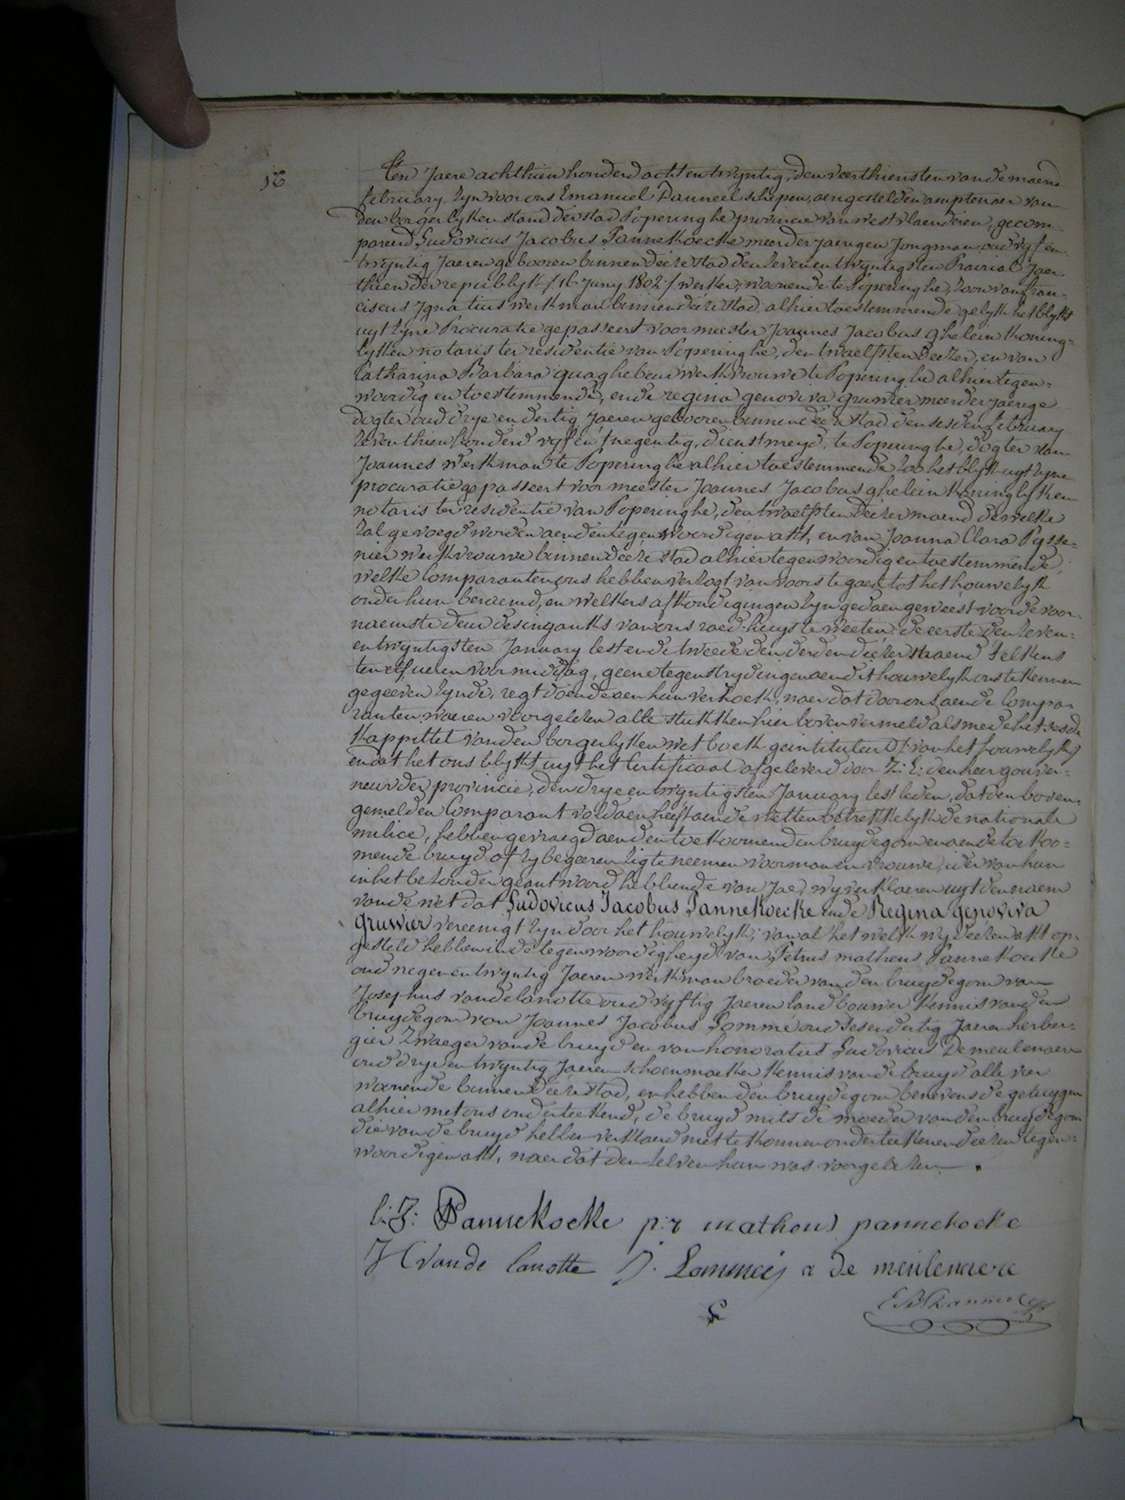 16
Ten Jaere achthien honderd acht en twyntig, den veerthiensten van de maend
february zyn voor ons Emanuel Panneel schepen, aengestelden amptenaer van
den borgerlyken stand der stad Poperinghe provincie van westvlaenderen, gecom-
pareerd Ludovicus Jacobus Pannekoecke meerderjaerigen Jongman oud vyf en
twyntig Jaeren gebooren binnen deeze stad den zevenentwyntigsten Prairial Jaer
thien der republyk /16 Juny 1802/ werker, woonende te Poperinghe, zoon van fran-
ciscus Ignatius werkman binnen deeze stad, alhier toestemmende gelyk het blykt
uyt zyne Procuratie gepasseert voor meester Joannes Jacobus ghelein koning-
lyken notaris ter residentie van Poperinghe, den twaelfsten deezer, en van
Catharina Barbara quaghebeur werkvrouwe te Poperinghe alhier tegen-
woordig en toestemmende, ende regina genoviva gruwier meerderjaerige
dogter oud drye en dertig Jaeren gebooren binnen deeze stad den sesden february
zeventhien honderd vyf en negentig, dienstmeyd, te Poperinghe, dogter van
Joannes werkman te Poperinghe alhier toestemmende zoo het blykt uyt zyne
procuratie gepasseert voor meester Joannes Jacobus ghelein koninglyken
notaris ter residentie van Poperinghe, den twaelfsten deezer maend dewelke
zal gevoegd worden aen den tegenwoordigen akt, en van Joanna Clara Pysse-
nier werkvrouwe binnen deeze stad alhier tegenwoordig en toestemmende;
welke Comparanten ons hebben verzogt van voorts te gaen tot het houwelyk
onder hun beraemd, en welkers afkondigingen zyn gedaen geweest voor de voor-
naemste deur des ingangks van ons raed-huys te weeten de eerste den zeven-
entwyntigsten January lest ende tweede den derden deezer maend telkens
ten elf ueren voormiddag, geene tegenstrydingen aen dit houwelyk ons te kennen
gegeeven zynde, regt doende aen hun verzoek, naer dat door ons aen de Compa-
ranten waeren voorgelezen alle stukken hier boven vermeld als mede het sesde
kappittel van den borgerlyken wet boek geintituleert van het houwelyk,
en dat het ons blykt uyt het Certificaat afgeleverd door Z: E: den heer gouver-
neur der provincie, den drye en twyntigsten January lestleden, dat den boven-
gemelden Comparant voldaen heeft aen de wetten betrekkelyk de nationale
milicie, hebben gevraegd aen den toekoomenden bruydegom en aen de toekoo-
mende bruyd of zy begeeren zig te neemen voor man en vrouwe, ider van hun
in het bezonder geantwoord hebbende van Jae, wy verklaeren uyt den naem
van de wet dat Ludovicus Jacobus Pannekoecke ende Regina genoviva
gruwier vereenigt zyn door het houwelyk; van al het welk wy deezen akt op-
gesteld hebben in de tegenwoordigheyd van Petrus matheus Pannekoecke
oud negen en twyntig Jaeren werkman broeder van den bruydegom van
Josephus vande lanotte oud vyftig Jaeren landbouwer kennis van den
bruydegom van Joannes Jacobus Lommé oud ses en dertig Jaeren herber-
gier Zwaeger van de bruyd en van honoratus Ludovicus De meulenaere
oud drye en twyntig Jaeren schoenmaeker kennis van de bruyd alle vier
woonende binnen deeze stad, en hebben den bruydegom benevens de getuygen
alhier met ons onderteekend, de bruyd mits de moeder van den bruydegom
die van de bruyd hebben verklaerd niet te konnen onderteekenen deezen tegen-
woordigen akt, naer dat den zelven hun was voorgelezen.
L: J: Pannekoeke p:r matheus pannekoeke
J vande lanotte J. Lommeij a de meulenaere
E Panneel